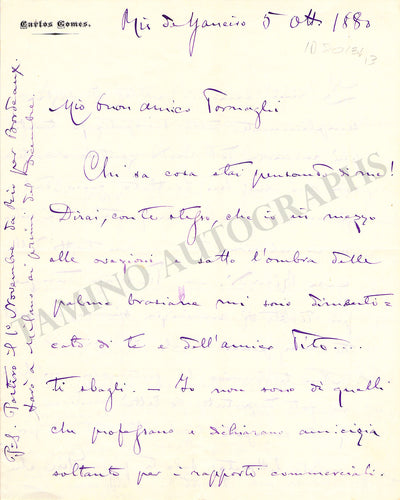 Carlos Gomes.
Rio de Janeiro 5 Ott. 1880
Mio buon amico Tornaghi
Chi sa cosa stai pensando di me!
Dirai, con te stesso, che io in mezzo
alle ovazioni e sotto l'ombra delle
palme brasiliane mi sono dimenti=
cato di te e dell'amico Tito....
ti sbagli. — Io non sono di quelli
che professano e dichiarano amicizia
soltanto per i rapporti commerciali.
P.S. Partirò il 1º Novembre da Rio per Bordeaux.
Sarò a Milano ai primi del Dicembre.
TAMINO AUTOGRAPHS